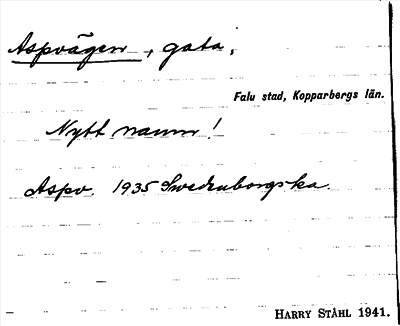 Aspvägen, gata,
Falu stad, Kopparbergs län.
Nytt namn!
Aspv. 1935 Swedenborgska.
HARRY STÅHL 1941.